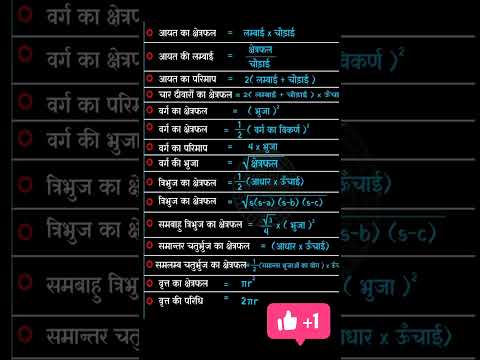 आयत का क्षेत्रफल = लम्बाई x चौड़ाई
आयत की लम्बाई = क्षेत्रफल / चौड़ाई
आयत का परिमाप = 2( लम्बाई + चौड़ाई )
चार दीवारों का क्षेत्रफल = 2( लम्बाई + चौड़ाई ) x ऊँचाई
वर्ग का क्षेत्रफल = ( भुजा )²
वर्ग का क्षेत्रफल = 1/2 ( वर्ग का विकर्ण )²
वर्ग का परिमाप = 4 x भुजा
वर्ग की भुजा = √क्षेत्रफल
त्रिभुज का क्षेत्रफल = 1/2 (आधार x ऊँचाई)
त्रिभुज का क्षेत्रफल = √s(s-a) (s-b) (s-c)
समबाहु त्रिभुज का क्षेत्रफल = √3/4 x ( भुजा )²
समान्तर चतुर्भुज का क्षेत्रफल = (आधार x ऊँचाई)
समलम्ब चतुर्भुज का क्षेत्रफल = 1/2 (समान्तर भुजाओं का योग ) x ऊँ
वृत्त का क्षेत्रफल = πr²
वृत्त की परिधि = 2πr
+1
वर्ग का क्षे
वर्ग का क्षे
वर्ग का परि
वर्ग की भुज
त्रिभुज का
त्रिभुज का
समबाहु त्रि
समान्तर चतु
वेकर्ण )²
ऊँचाई)
-b) (s-c)
भुजा )²
x ऊँचाई)